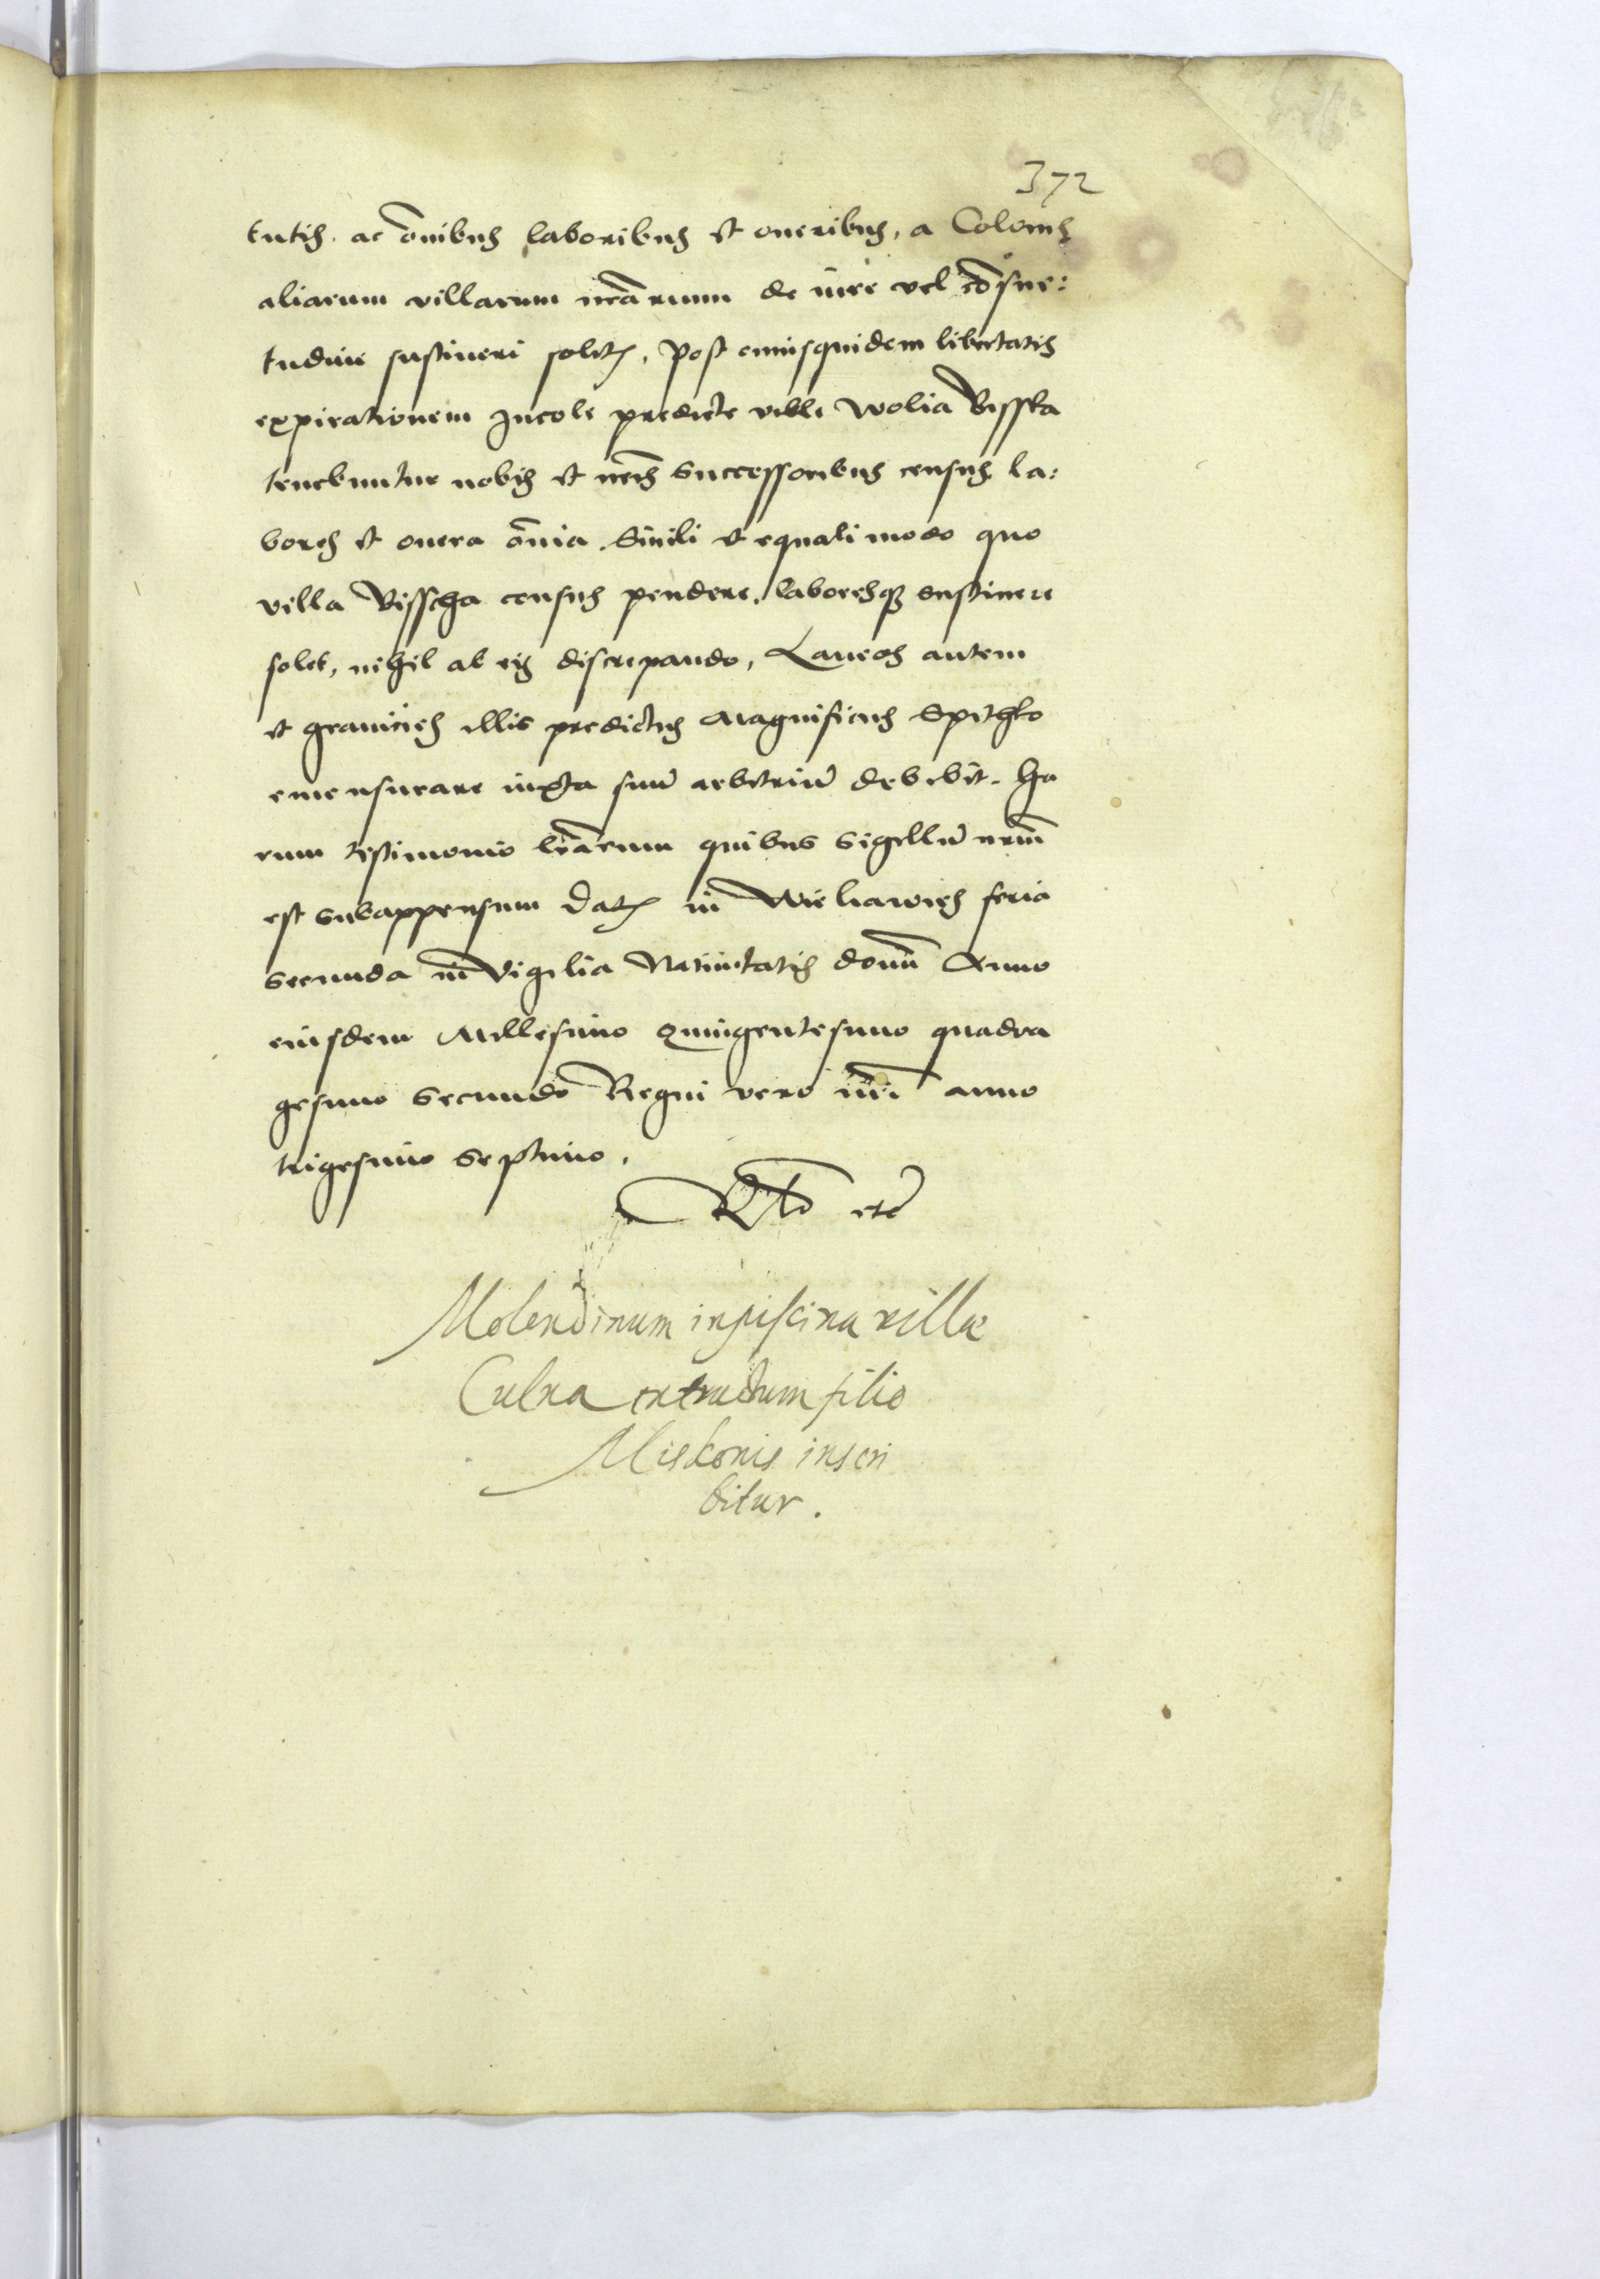 372
tutis. ac o͞nibus laboribus et oneribus, a Colonis
aliarum villarum nr̄arum de iure vel co͞sue:
tudine sustineri solitis, Post cuiusquidem libertatis
expirationem Incole predicte ville Wolia Bisska
tenebuntur nobis et nr̄is Successoribus census la:
bores et onera o͞nia Simili et equali modo quo
villa Bisscha census pendere, laboresq; sustinere
solet, nihil ab eis discrepando, Laneos autem
et granicies illis predictus Magnificus Spithko
emensurare iuxta suu͞ arbitriu͞ debebit. Ha
rum testimonio lr̄arum quibus Sigillu͞ nr̄m
est subappensum Dat in Wieliawies feria
secunda in Vigilia Nativitatis domni Anno
eiusdem Millesimo Quingentesimo quadra
gesimo Secundo Regni vero nr̄i anno
trigesimo Septimo.
Rto etc
Molendinum in piscina villæ
Culna extructum filio
Mielconis inscri
bitur.